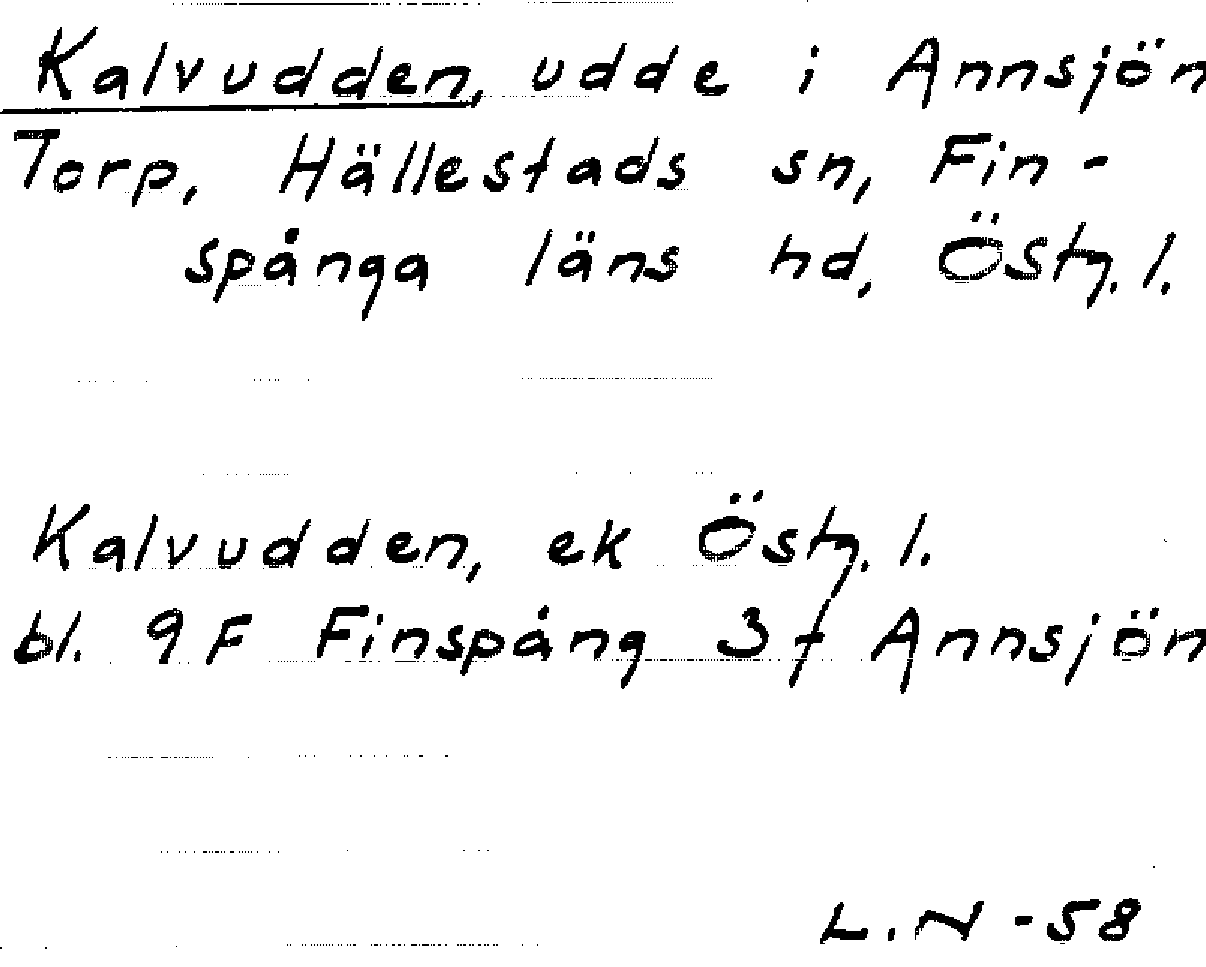 Kalvudden, udde i Annsjön
Torp, Hällestads sn, Fin-
spånga läns hd, Östg. l.
Kalvudden, ek Östg. l.
bl. 9 F Finspång 3 f Annsjön
L. N -58